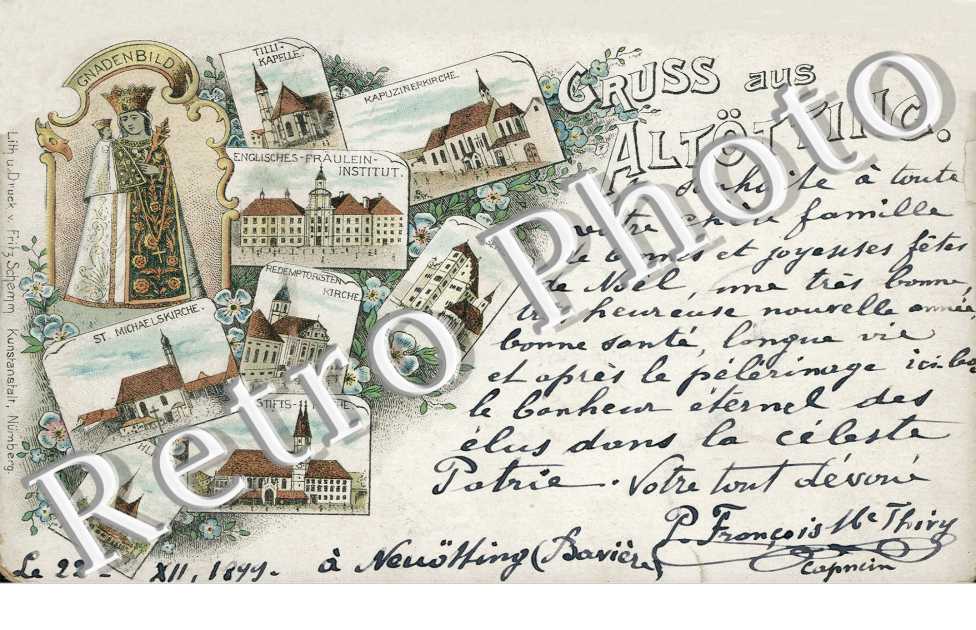 GNADENBILD
TILLI-
KAPELLE.
KAPUZINERKIRCHE.
GRUSS aus
ALTÖTTING.
ENGLISCHES-FRÄULEIN-
INSTITUT.
REDEMPTORISTEN-
KIRCHE.
ST. MICHAELSKIRCHE.
STIFTS-
Lith. u. Druck v. Fritz Schemm Kunstanstalt, Nürnberg.
souhaite à toute
votre chère famille
de bonnes et joyeuses fêtes
de Noël, une très bonne,
très heureuse nouvelle année
bonne santé, longue vie
et après le pélerinage ici-bas
le bonheur éternel des
élus dans la céleste
Patrie. Votre tout dévoué
P. François Me Thiry
Capucin
Le 22- XII, 1899. à Neuötting (Bavière)
Retro Photo